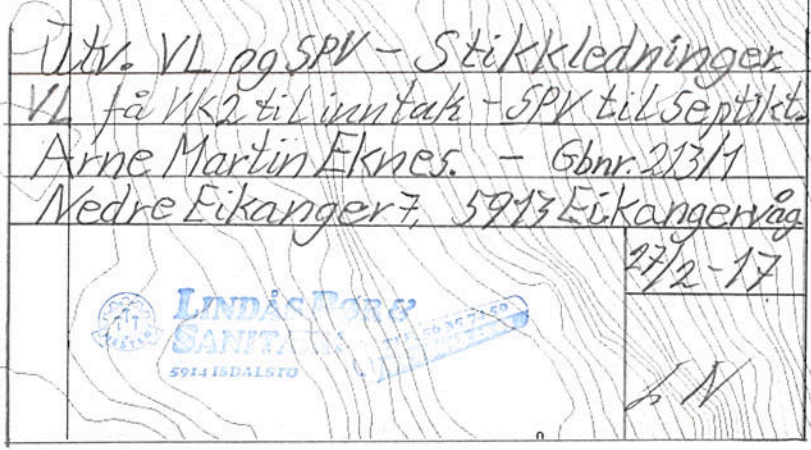 Utv. VL og SPV - Stikkledninger
VL få VK2 til inntak - SPV til Septikt
Arne Martin Eknes. - Gbnr. 213/1
Nedre Eikanger 7, 5913 Eikangervåg
27/2-17
LINDÅS RØR &
SANITÆR
TLF. 56 35 71 50
5914 ISDALSTØ
LN